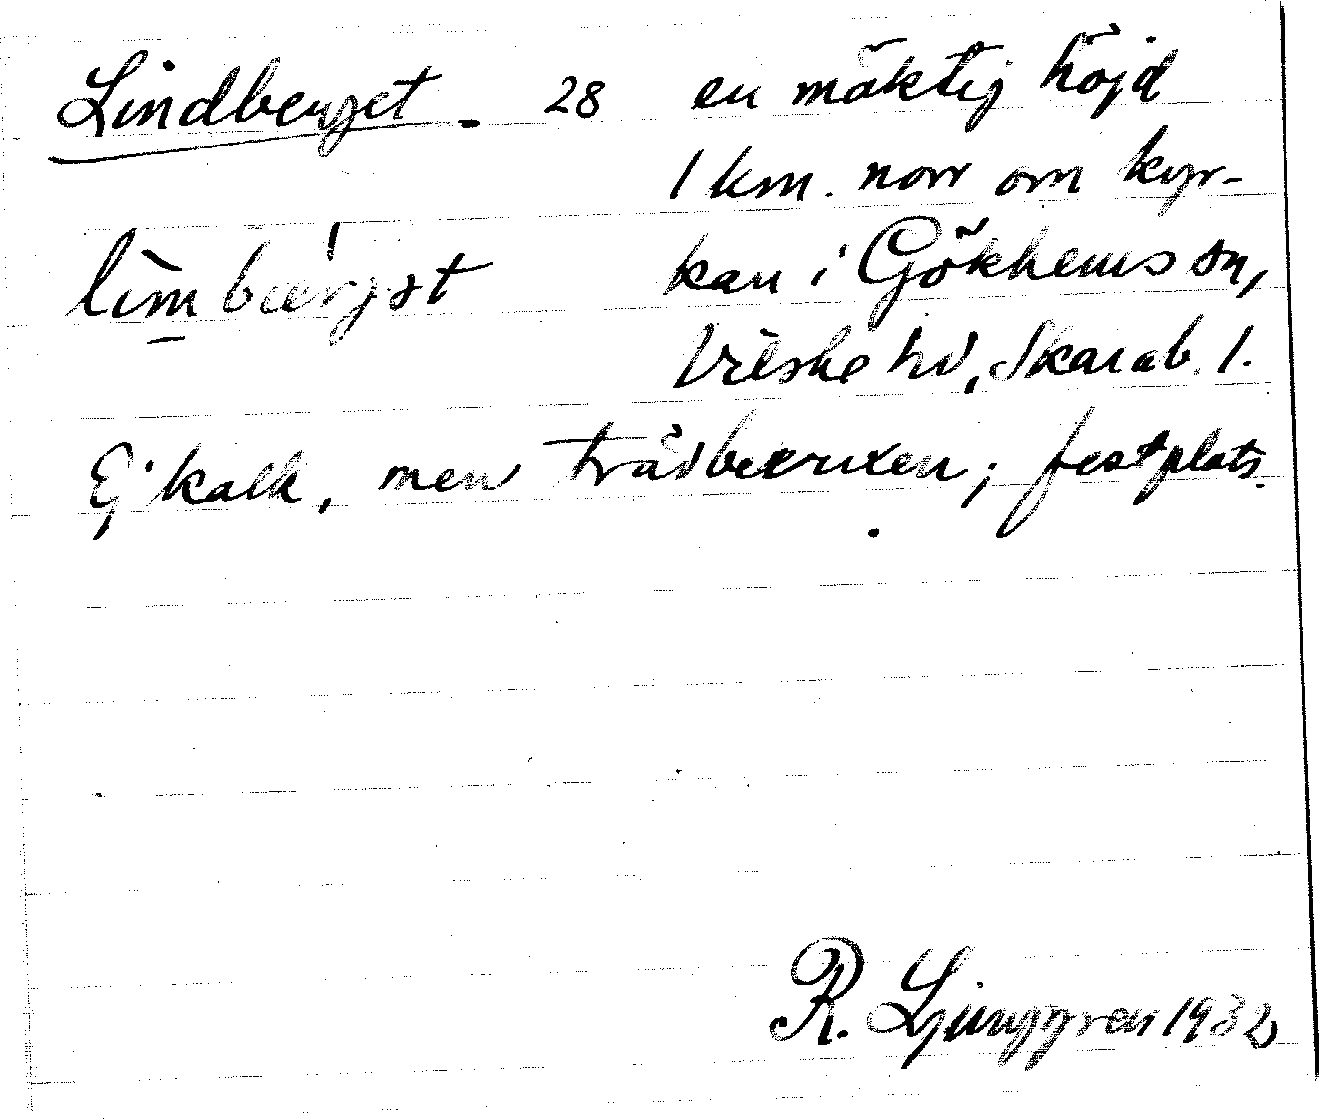 Lindberget. 28 en mäktig höjd
1 km. norr om kyr-
lìmbærgət kan i Gökhems sn,
Vilske hd, Skarab. l.
Ej kalk, men trädbevuxen; festplats.
R. Ljunggren 1932